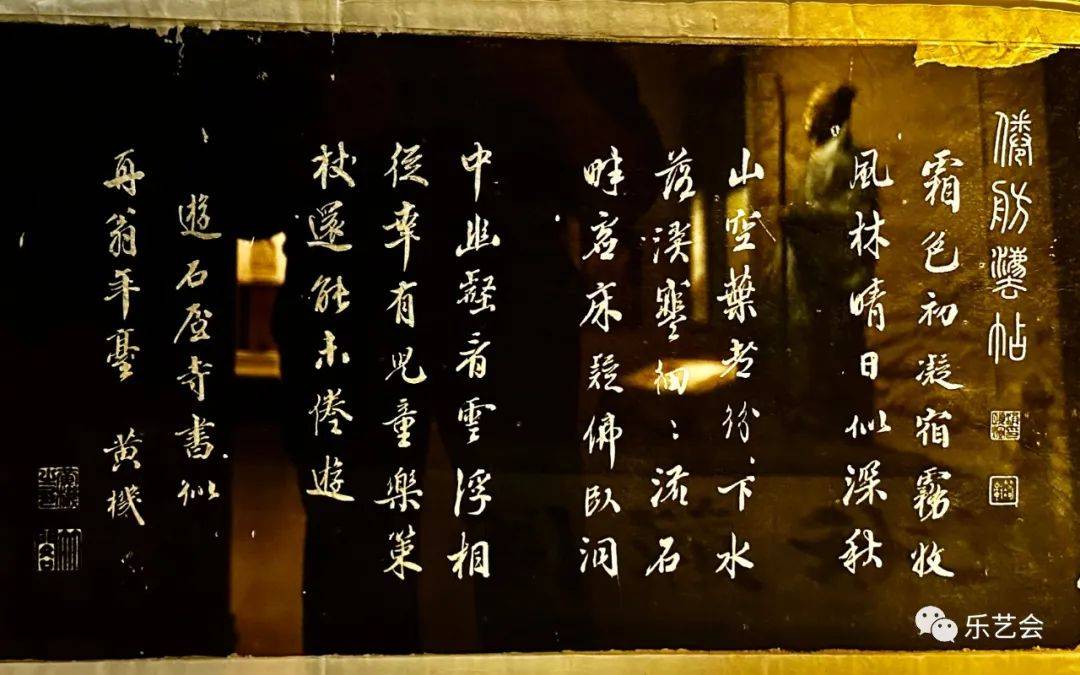 倦舫灋帖
霜色初凝宿霧收
風林晴日似深秋
山空葉老紛〻下水
落溪寒細〻流石
畔床疑佛臥洞
中幽壑看雲浮相
從幸有兒童樂策
杖還能未倦遊
遊石屋寺書似
再翁年臺 黃機
乐艺会